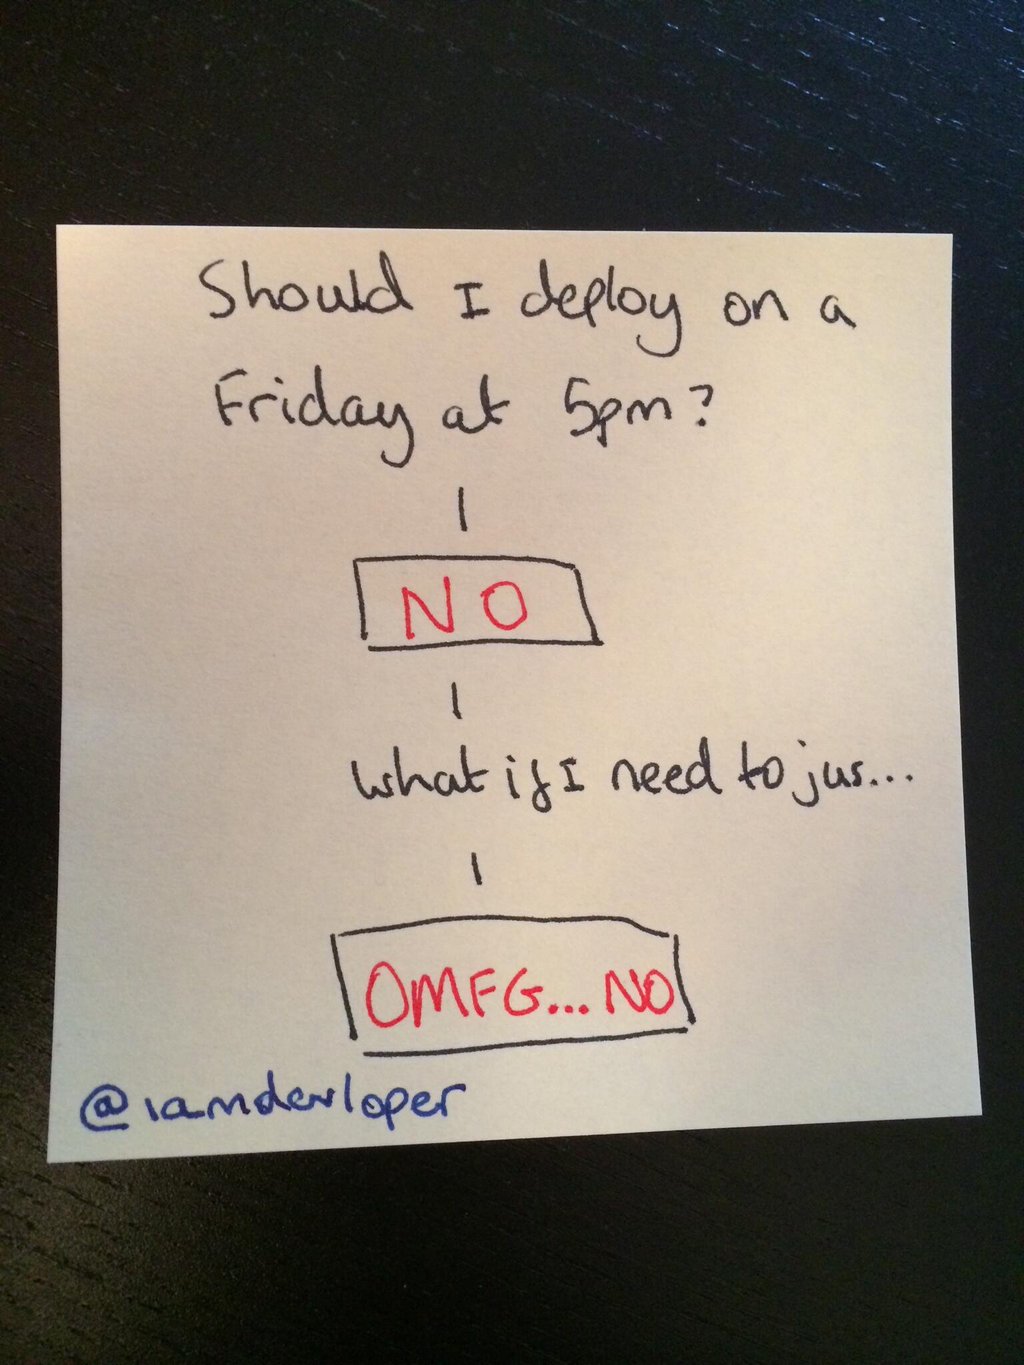 Should I deploy on a
Friday at 5pm?
NO
What if I need to jus...
OMFG... NO
@iamdevloper